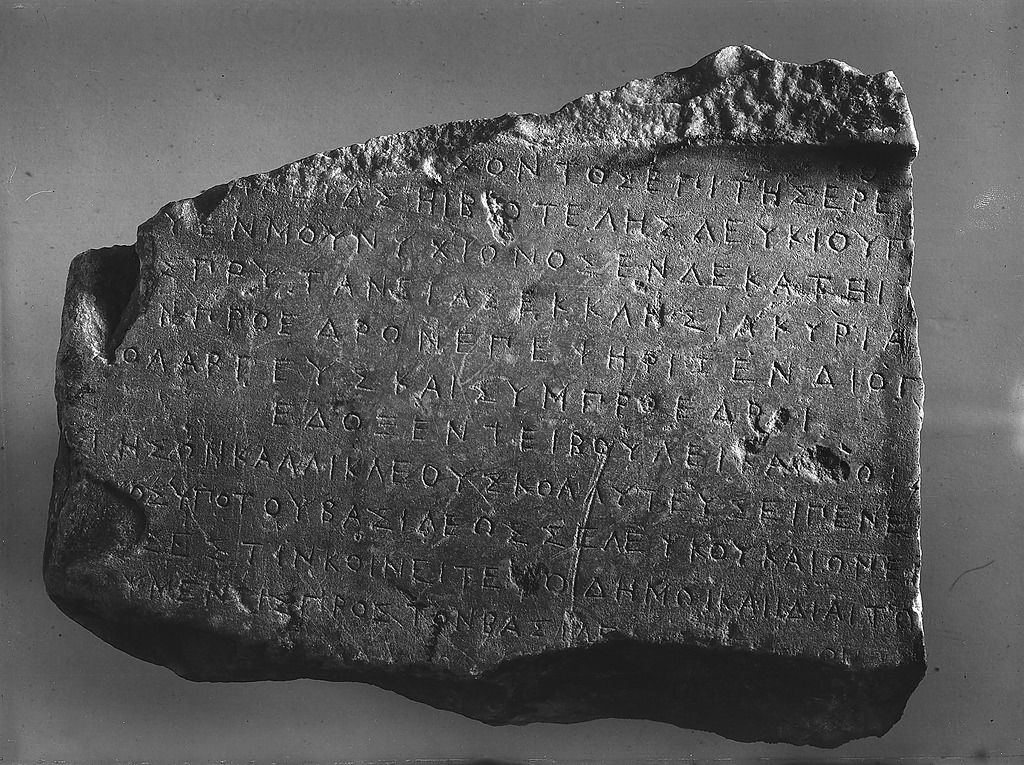 ΧΟΝΤΟΣΕΠΙΤΗΣΕΡΕ
ΙΔΑΣΗΙΒΙΟΤΕΛΗΣΛΕΥΚΙΟΥΠ
ΕΝΜΟΥΝΥΧΙΩΝΟΣΕΝΔΕΚΑΤΗΙ
ΣΠΡΥΤΑΝΕΙΑΣΕΚΚΛΗΣΙΑΚΥΡΙΑ
ΝΠΡΟΕΔΡΩΝΕΠΕΨΗΦΙΣΕΝΔΙΟΠ
ΟΛΑΡΓΕΥΣΚΑΙΣΥΜΠΡΟΕΔΡΟΙ
ΕΔΟΞΕΝΤΕΙΒΟΥΛΕΙΚΑΙ
ΤΗΣΩΝΚΑΛΛΙΚΛΕΟΥΣΚΟΛΛΥΤΕΥΣΕΙΠΕΝΕ
ΟΣΥΠΟΤΟΥΒΑΣΙΛΕΩΣΣΕΛΕΥΚΟΥΚΑΙΩΝΕ
ΣΕΣΤΙΝΚΟΙΝΕΙΤΕ ΔΗΜΩΙΚΑΙΙΔΙΑΙΤΟ
ΥΜΕΝ ΙΣΠΡΟΣΤΟΝΒΑΣΙΛΕ